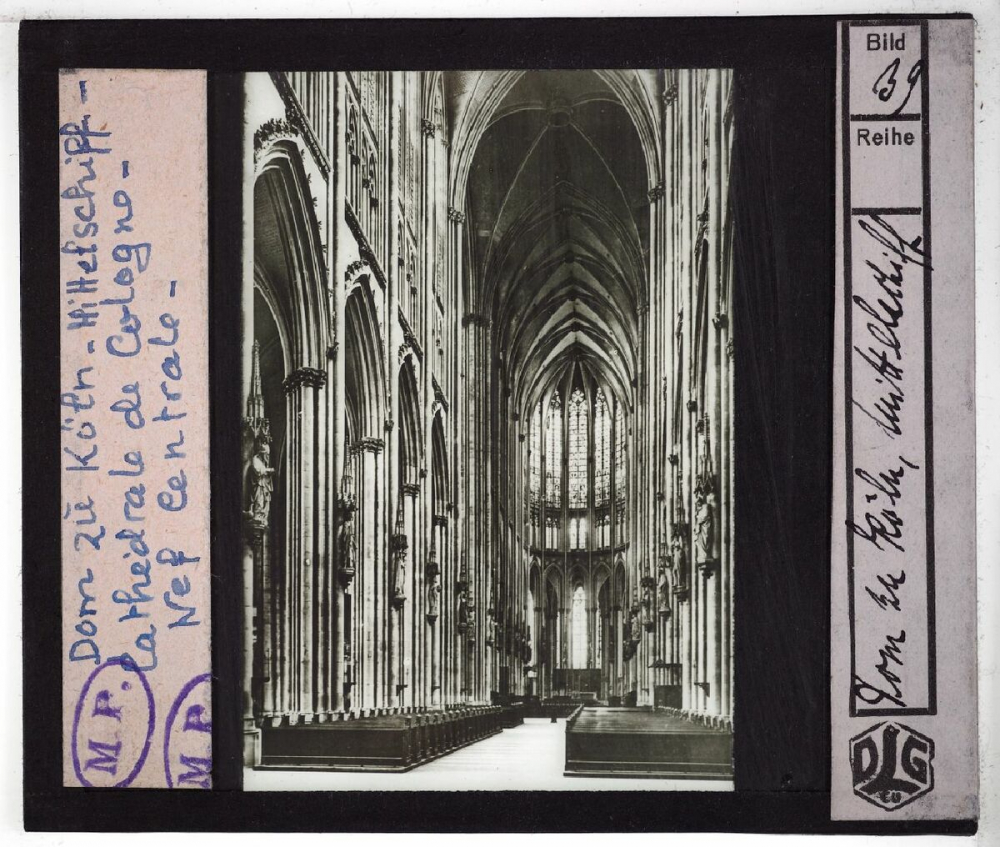 Dom zu Köln - Mittelschiff -
Cathédrale de Cologne -
Nef Centrale -
M P.
M P
Bild
39
Reihe
Dom zu Köln, Mittelschiff
DLG